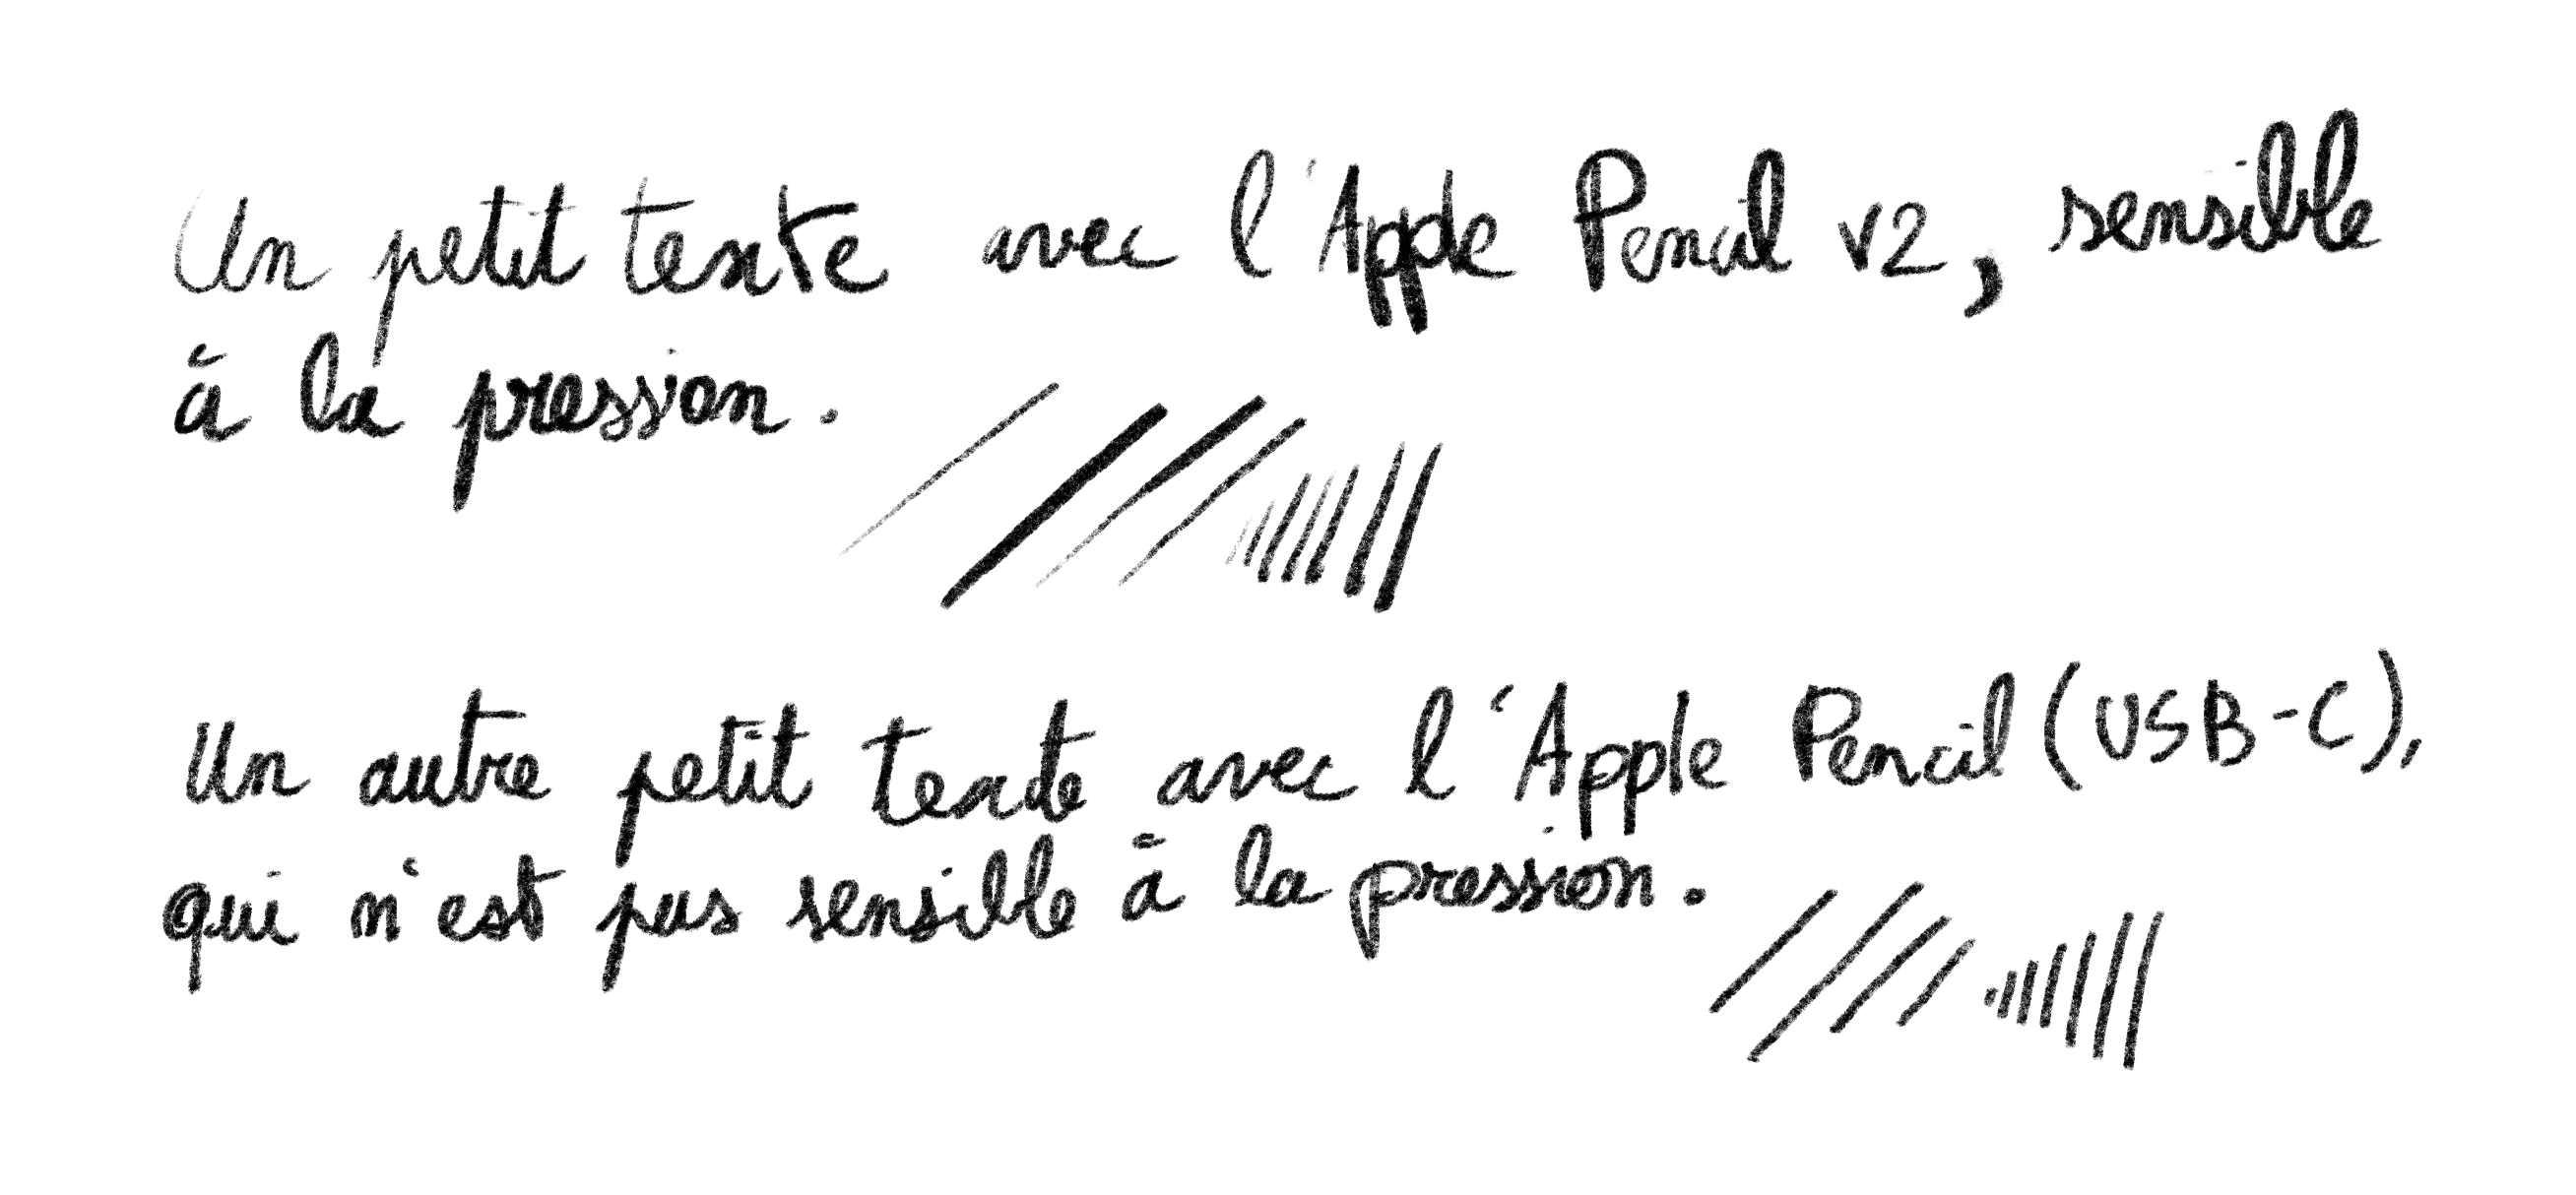 Un petit texte avec l'Apple Pencil v2, sensible
à la pression.
Un autre petit texte avec l'Apple Pencil (USB-C),
qui n'est pas sensible à la pression.